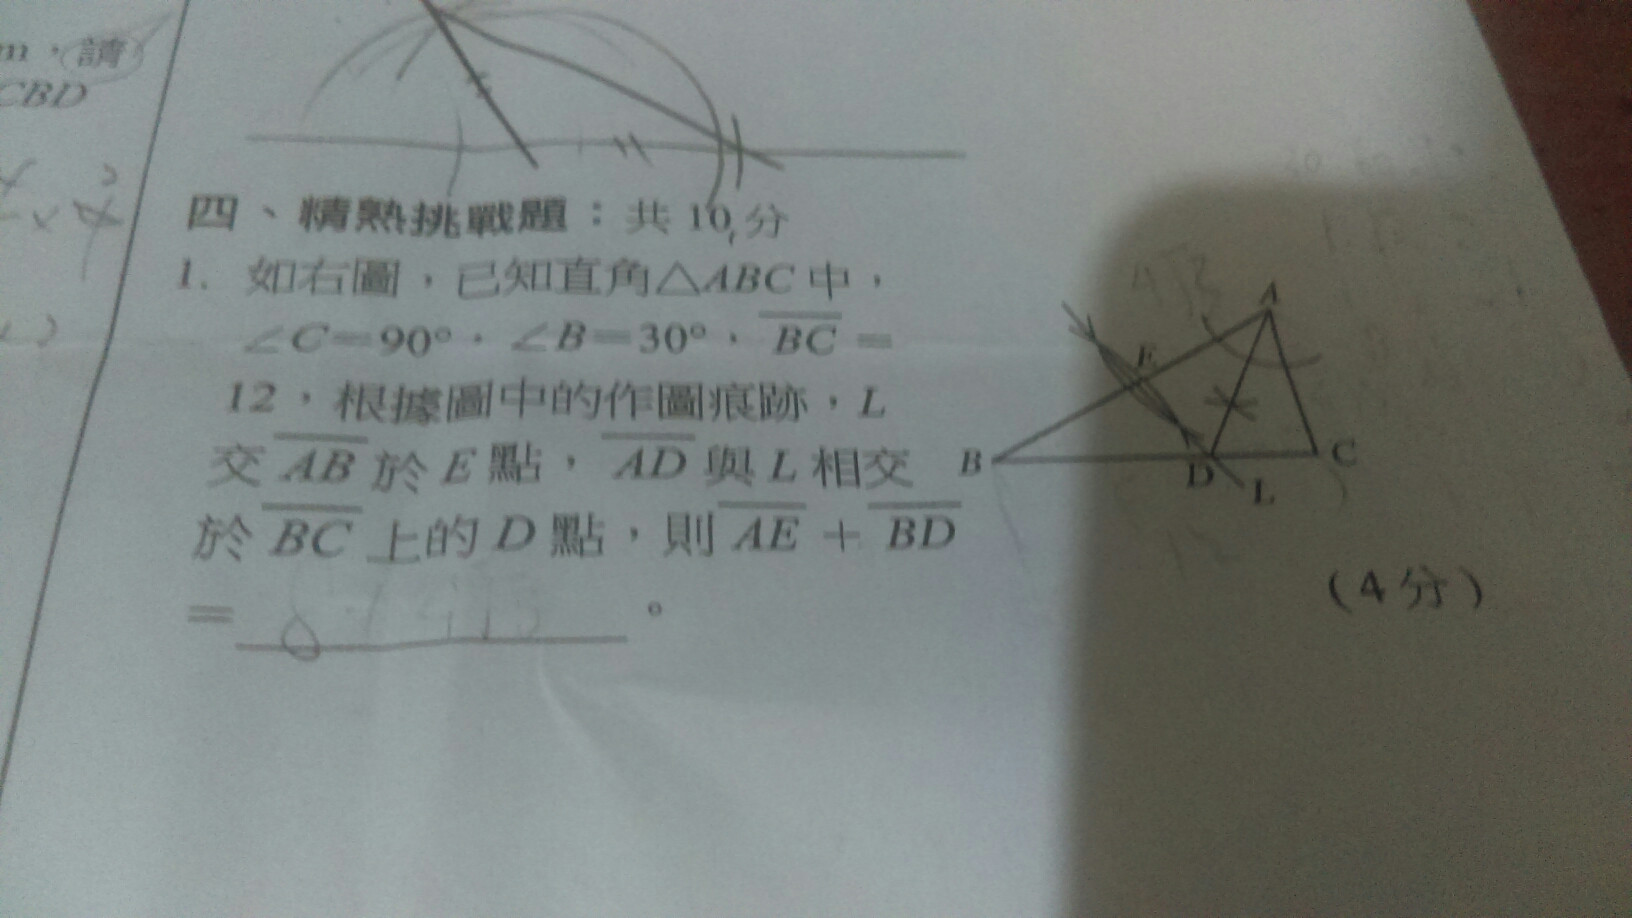 m，請
CBD
四、精熟挑戰題：共 10 分
1. 如右圖，已知直角△ABC 中，
∠C=90°，∠B=30°，BC =
12，根據圖中的作圖痕跡，L
交 AB 於 E 點，AD 與 L 相交
於 BC 上的 D 點，則 AE + BD
= 。
A
E
B
D
C
L
(4 分)